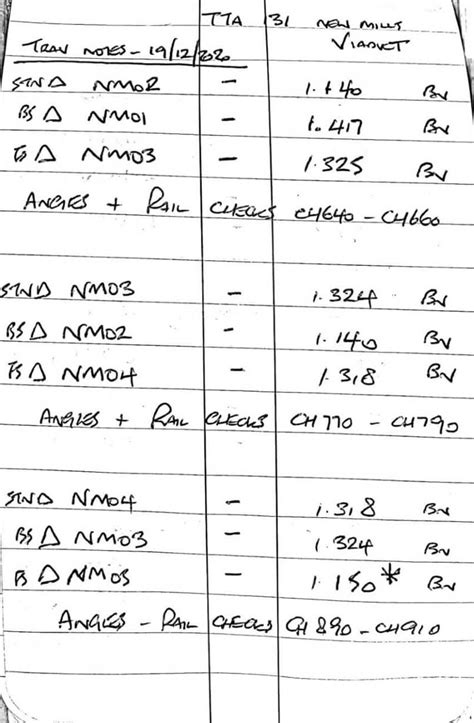 TTA 131 NEW MILLS VIADUCT
TRAV NOTES - 19/12/2020
STND △ NM02 - 1.140 BN
BS △ NM01 - 1.417 BN
FS △ NM03 - 1.325 BN
ANGLES + RAIL CHECKS CH640 - CH660
STND NM03 - 1.324 BN
BS △ NM02 - 1.140 BN
FS △ NM04 - 1.318 BN
ANGLES + RAIL CHECKS CH770 - CH790
STND NM04 - 1.318 BN
BS △ NM03 - 1.324 BN
FS △ NM05 - 1.150* BN
ANGLES - RAIL CHECKS CH890 - CH910